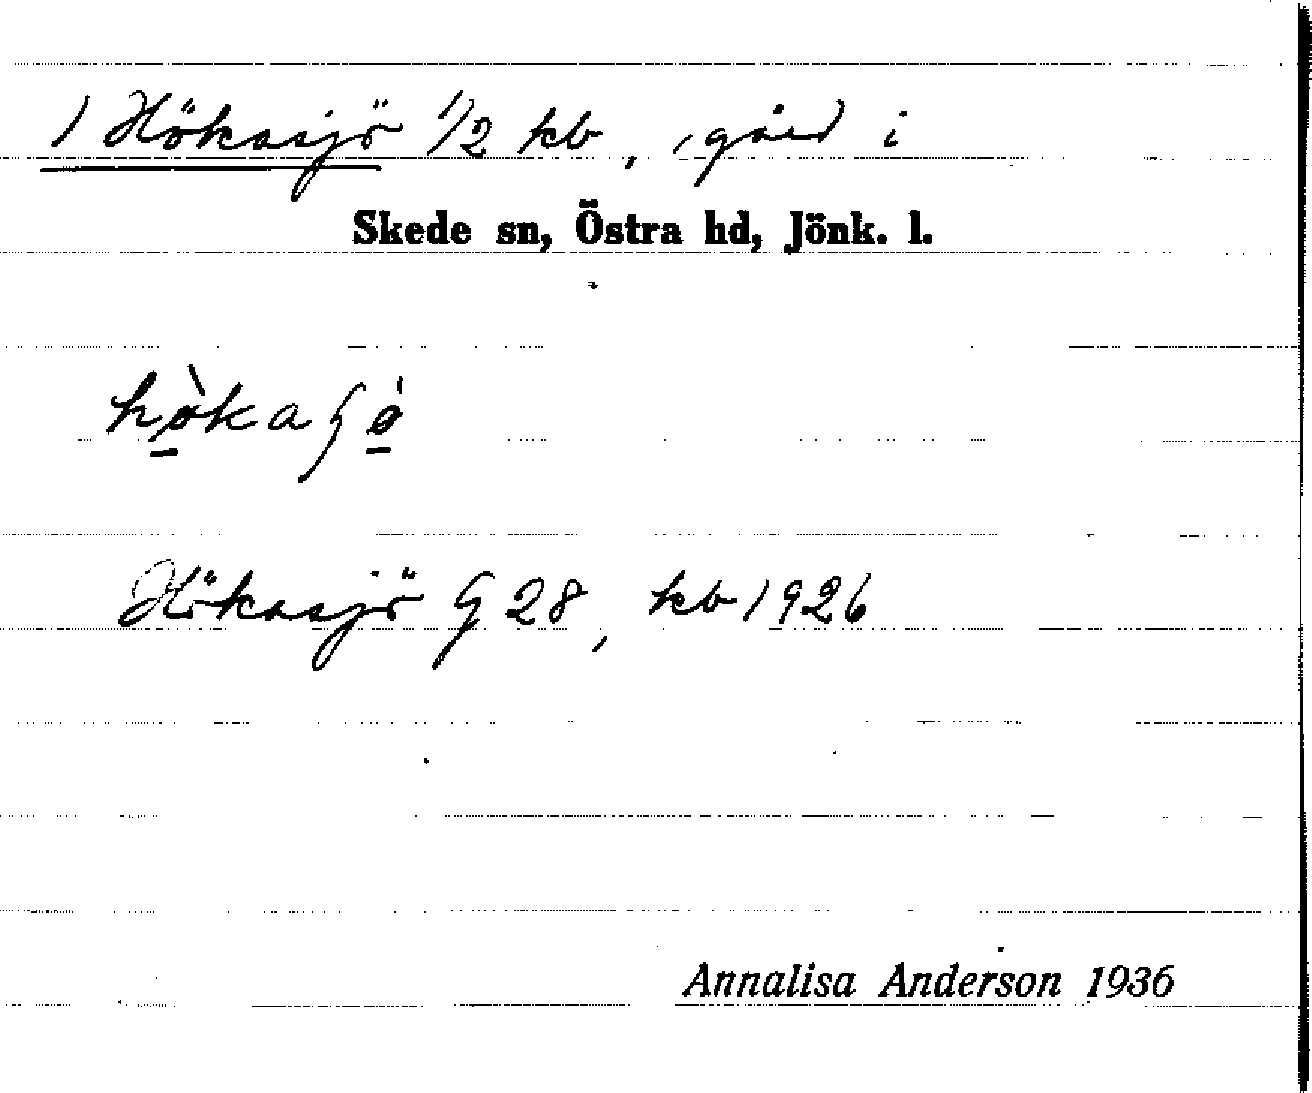 1 Hökasjö 1/2 kb, gård i
Skede sn, Östra hd, Jönk. l.
Hökasjö G 28, kb 1926
Annalisa Anderson 1936